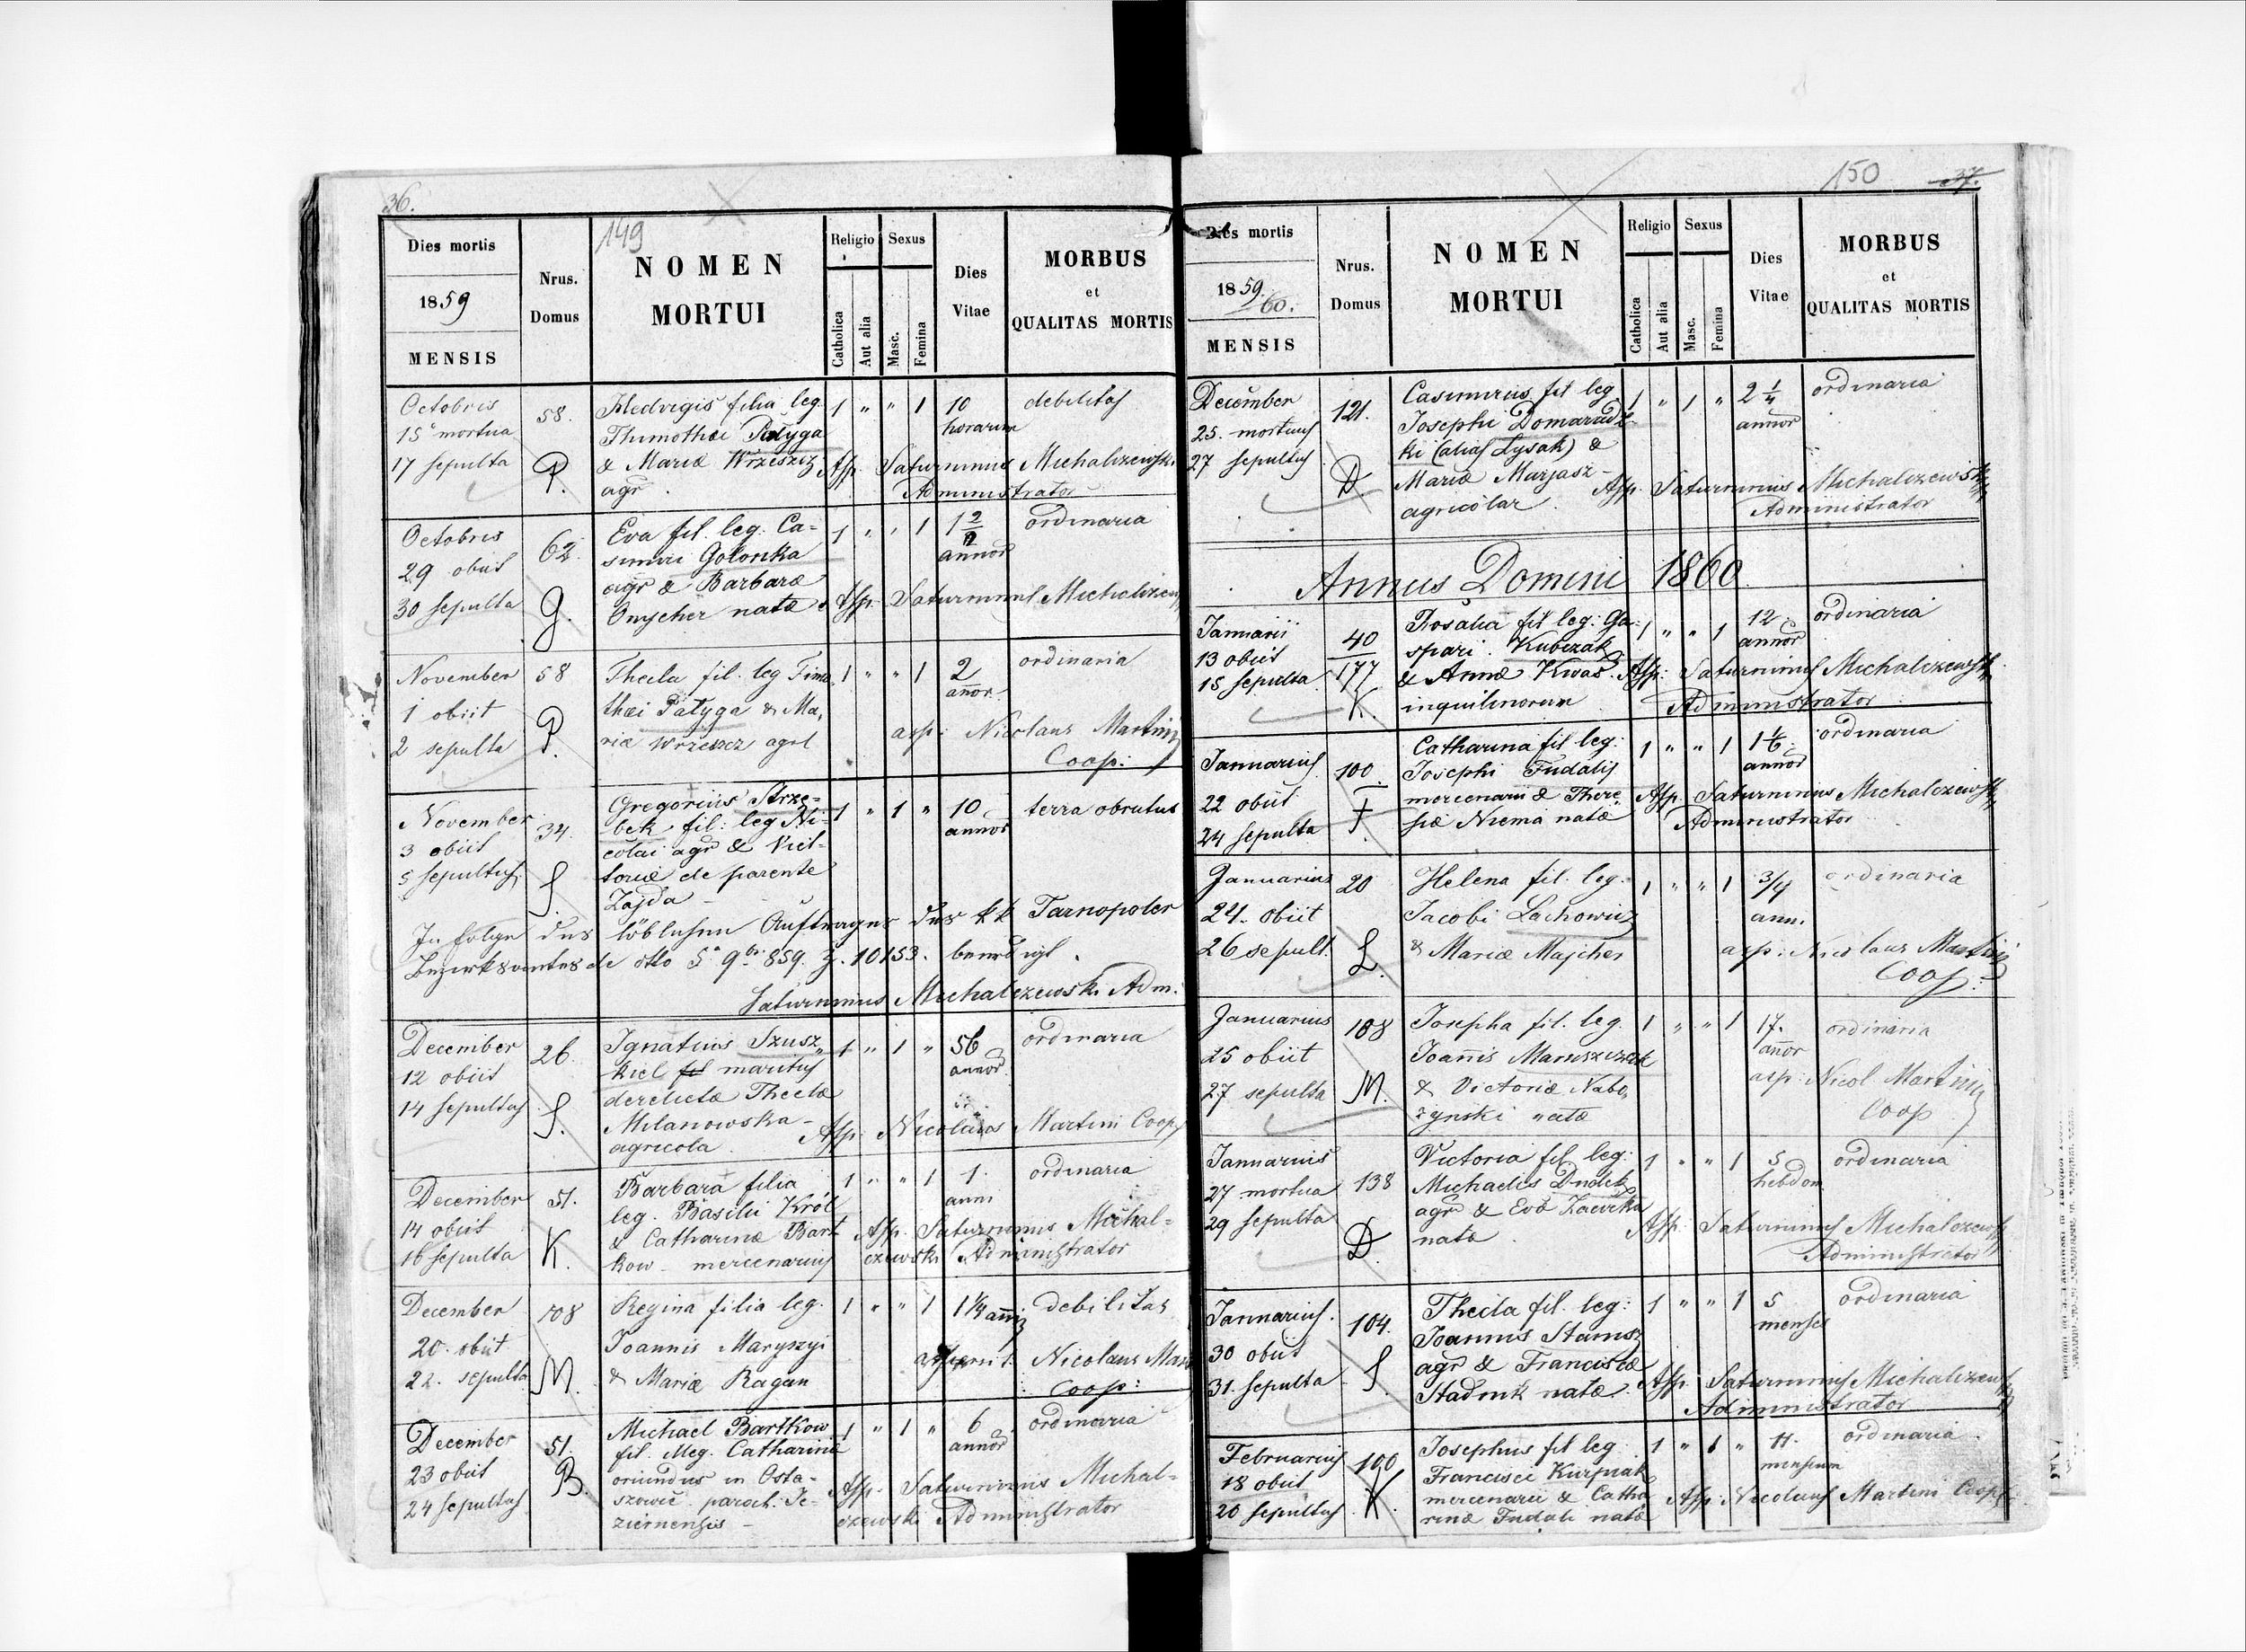 36.
149
Dies mortis
1859
MENSIS
Nrus.
Domus
NOMEN
MORTUI
Religio
Catholica
Aut alia
Sexus
Masc.
Femina
Dies
Vitae
MORBUS
et
QUALITAS MORTIS
Octobris
15 mortua
17 sepulta
58.
P.
Hedvigis filia leg.
Thimothæi Patyga
& Mariæ Wrzeszcz
agr.
1 " " 1
10
horarum
debilitas
Asp. Saturninus Michalczewski
Administrator
Octobris
29 obiit
30 sepulta
62.
G.
Eva fil. leg. Ca-
simiri Golonka
agr & Barbaræ
Onyscher natæ.
1 " " 1
annor
ordinaria
Asp. Saturninus
November
1 obiit
2 sepulta
58
P.
Thecla fil. leg Timo
thæi Patyga & Ma,
riæ Wrzeszcz agrl
1 " " 1
2
añor.
ordinaria
asp: Nicolaus Martini
Coop:
November
3 obiit
5 sepultus
34.
S.
Gregorius Strze-
bek fil: leg Ni-
colai agr & Vict-
toriæ de parente
Zajda -
1 " 1 "
10
annor
terra obrutus
In Folge des löblichen Auftrages des kk Tarnopoler
Bezirksamtes de dtto 5 9br 859. Z. 10153. beerdigt.
Saturninus Michalczewski Adm.
December
12 obiit
14 sepultus
26.
S.
Ignatius Szusz
kiel fil maritus
derelictæ Theclæ
Milanowska -
agricola.
1 " 1 "
56
annor
ordinaria
Asp. Nicolaus Martini Coop
December
14 obiit
16 sepulta
51.
K.
Barbara filia
leg. Basilii Król
& Catharinæ Bart
kow - mercenarius
1 " " 1
1.
anni
ordinaria
Asp. Saturninus Michal-
czewski Administrator
December
20. obiit
22. sepulta
108
M.
Regina filia leg.
Joannis Maryszyi
& Mariæ Ragan
1 " " 1
1 1/4
debilitas
Nicolaus
Coop:
December
23 obiit
24 sepultus
51.
B.
Michael Bartkow
fil. illeg. Catharinæ
oriundus in Osta-
szowic paroch. Je-
ziernensis -
1 " 1 "
6
annor
ordinaria
Asp. Saturninus Michal-
czewski Administrator
150
37.
Dies mortis
1859
60.
MENSIS
Nrus.
Domus
NOMEN
MORTUI
Religio
Catholica
Aut alia
Sexus
Masc.
Femina
Dies
Vitae
MORBUS
et
QUALITAS MORTIS
December
25. mortuus
27 sepultus
121.
D
Casimirus fil leg
Josephi Domaradz-
ki (alias Lysak) &
Mariæ Marjasz-
agricolar.
1 " 1 "
2 1/4
annor
ordinaria
Asp. Saturninus Michalczewski
Administrator
Annus Domini 1860
Januarii
13 obiit
15 sepulta
40
177
K.
Rosalia fil leg: Ga-
spari Kubczak
& Annæ Kwas.
inquilinorum
1 " " 1
12.
annor
ordinaria
Asp: Saturninus Michalczewski
Administrator
Januarius
22 obiit
24 sepulta
100.
F.
Catharina fil leg:
Josephi Fudalis
mercenarii & There
siæ Niema natæ
1 " " 1
1 1/6
annor
ordinaria
Asp Saturninus Michalczewski
Administrator
Januarius
24. obiit
26 sepult.
20
L.
Helena fil. leg.
Jacobi Lachowicz
& Mariæ Majcher
1 " " 1
3/4
ann.
ordinaria
asp: Nicolaus Martini
Coop:
Januarius
25 obiit
27 sepulta
108
M.
Josepha fil. leg.
Joañis Maruszczak
& Victoriæ Nabo,
zynski natæ
1 " " 1
17.
añor
ordinaria
asp: Nicol Martini
Coop
Januarius
27 mortua
29 sepulta
138
D.
Victoria fil leg:
Michaelis Dudek
agr & Evæ
natæ.
1 " " 1
5
hebdom
ordinaria
Asp. Saturninus Michalczewski
Administrator
Januarius.
30 obiit
31. sepulta
104.
S.
Thecla fil. leg:
Joannis Stanisz
agr & Franciscæ
Stadnik natæ.
1 " " 1
5
menses
ordinaria
Asp. Saturninus Michalczewski
Administrator
Februarius
18 obiit
20 sepultus
100
K.
Josephus fil leg.
Francisci Kurpiak
mercenarii & Catha
rinæ Fudali natæ
1 " 1 "
11.
mensium
ordinaria.
Asp. Nicolaus Martini Coop.